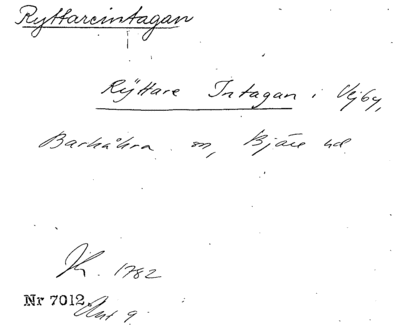 Ryttareintagan
Rÿttare Intagan i Vejby,
Barkåkra sn, Bjäre hd
Jk. 1782
Nr 7012. Akt 9